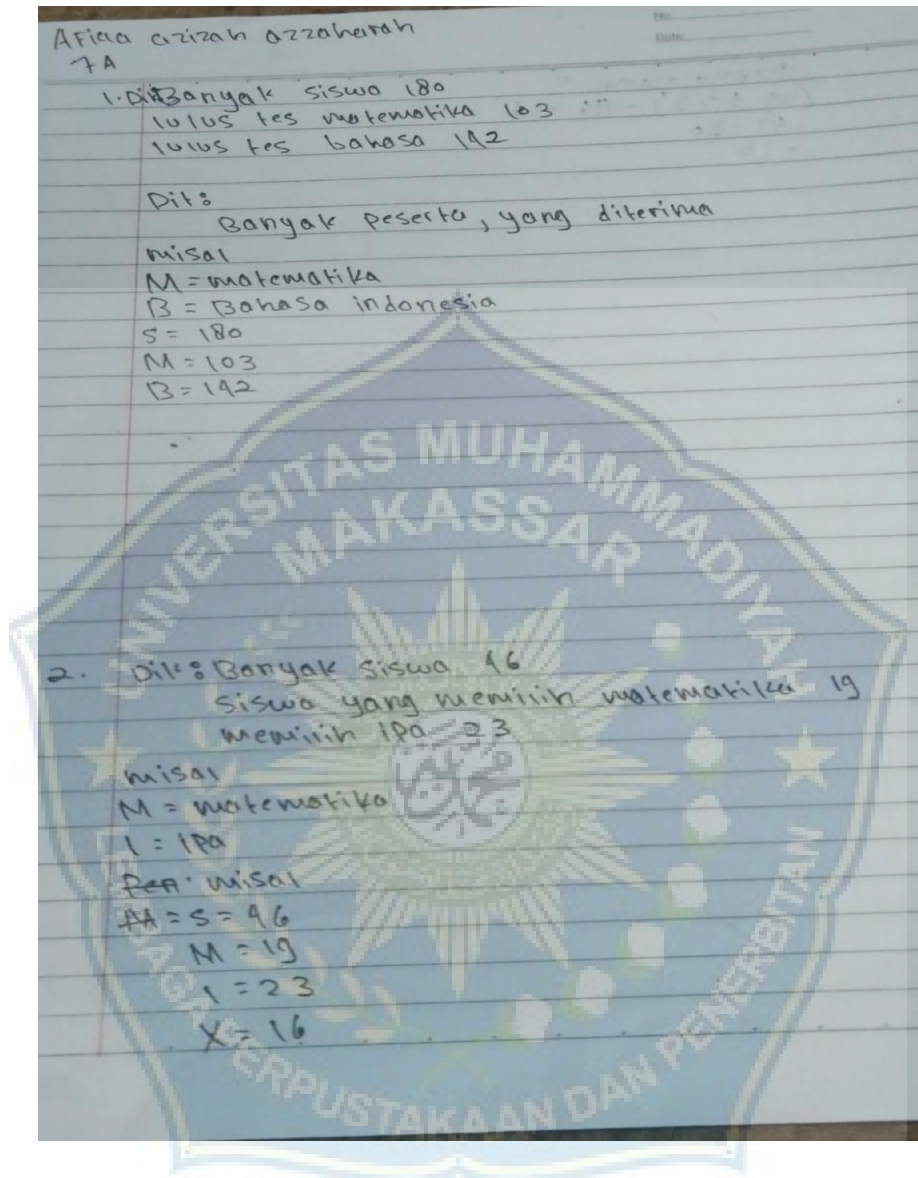 Afiqa azizah azzaharah
7A
No.
Date:
1. Dik Banyak siswa 180
lulus tes matematika 103
lulus tes bahasa 142
Dit:
Banyak peserta, yang diterima
misal
M = matematika
B = Bahasa indonesia
S = 180
M = 103
B = 142
2. Dik: Banyak siswa 46
siswa yang memilih matematika 19
memilih ipa 23
misal
M = matematika
I = ipa
misal
= S = 46
M = 19
I = 23
X = 16
UNIVERSITAS MUHAMMADIYAH
MAKASSAR
LEMBAGA PERPUSTAKAAN DAN PENERBITAN